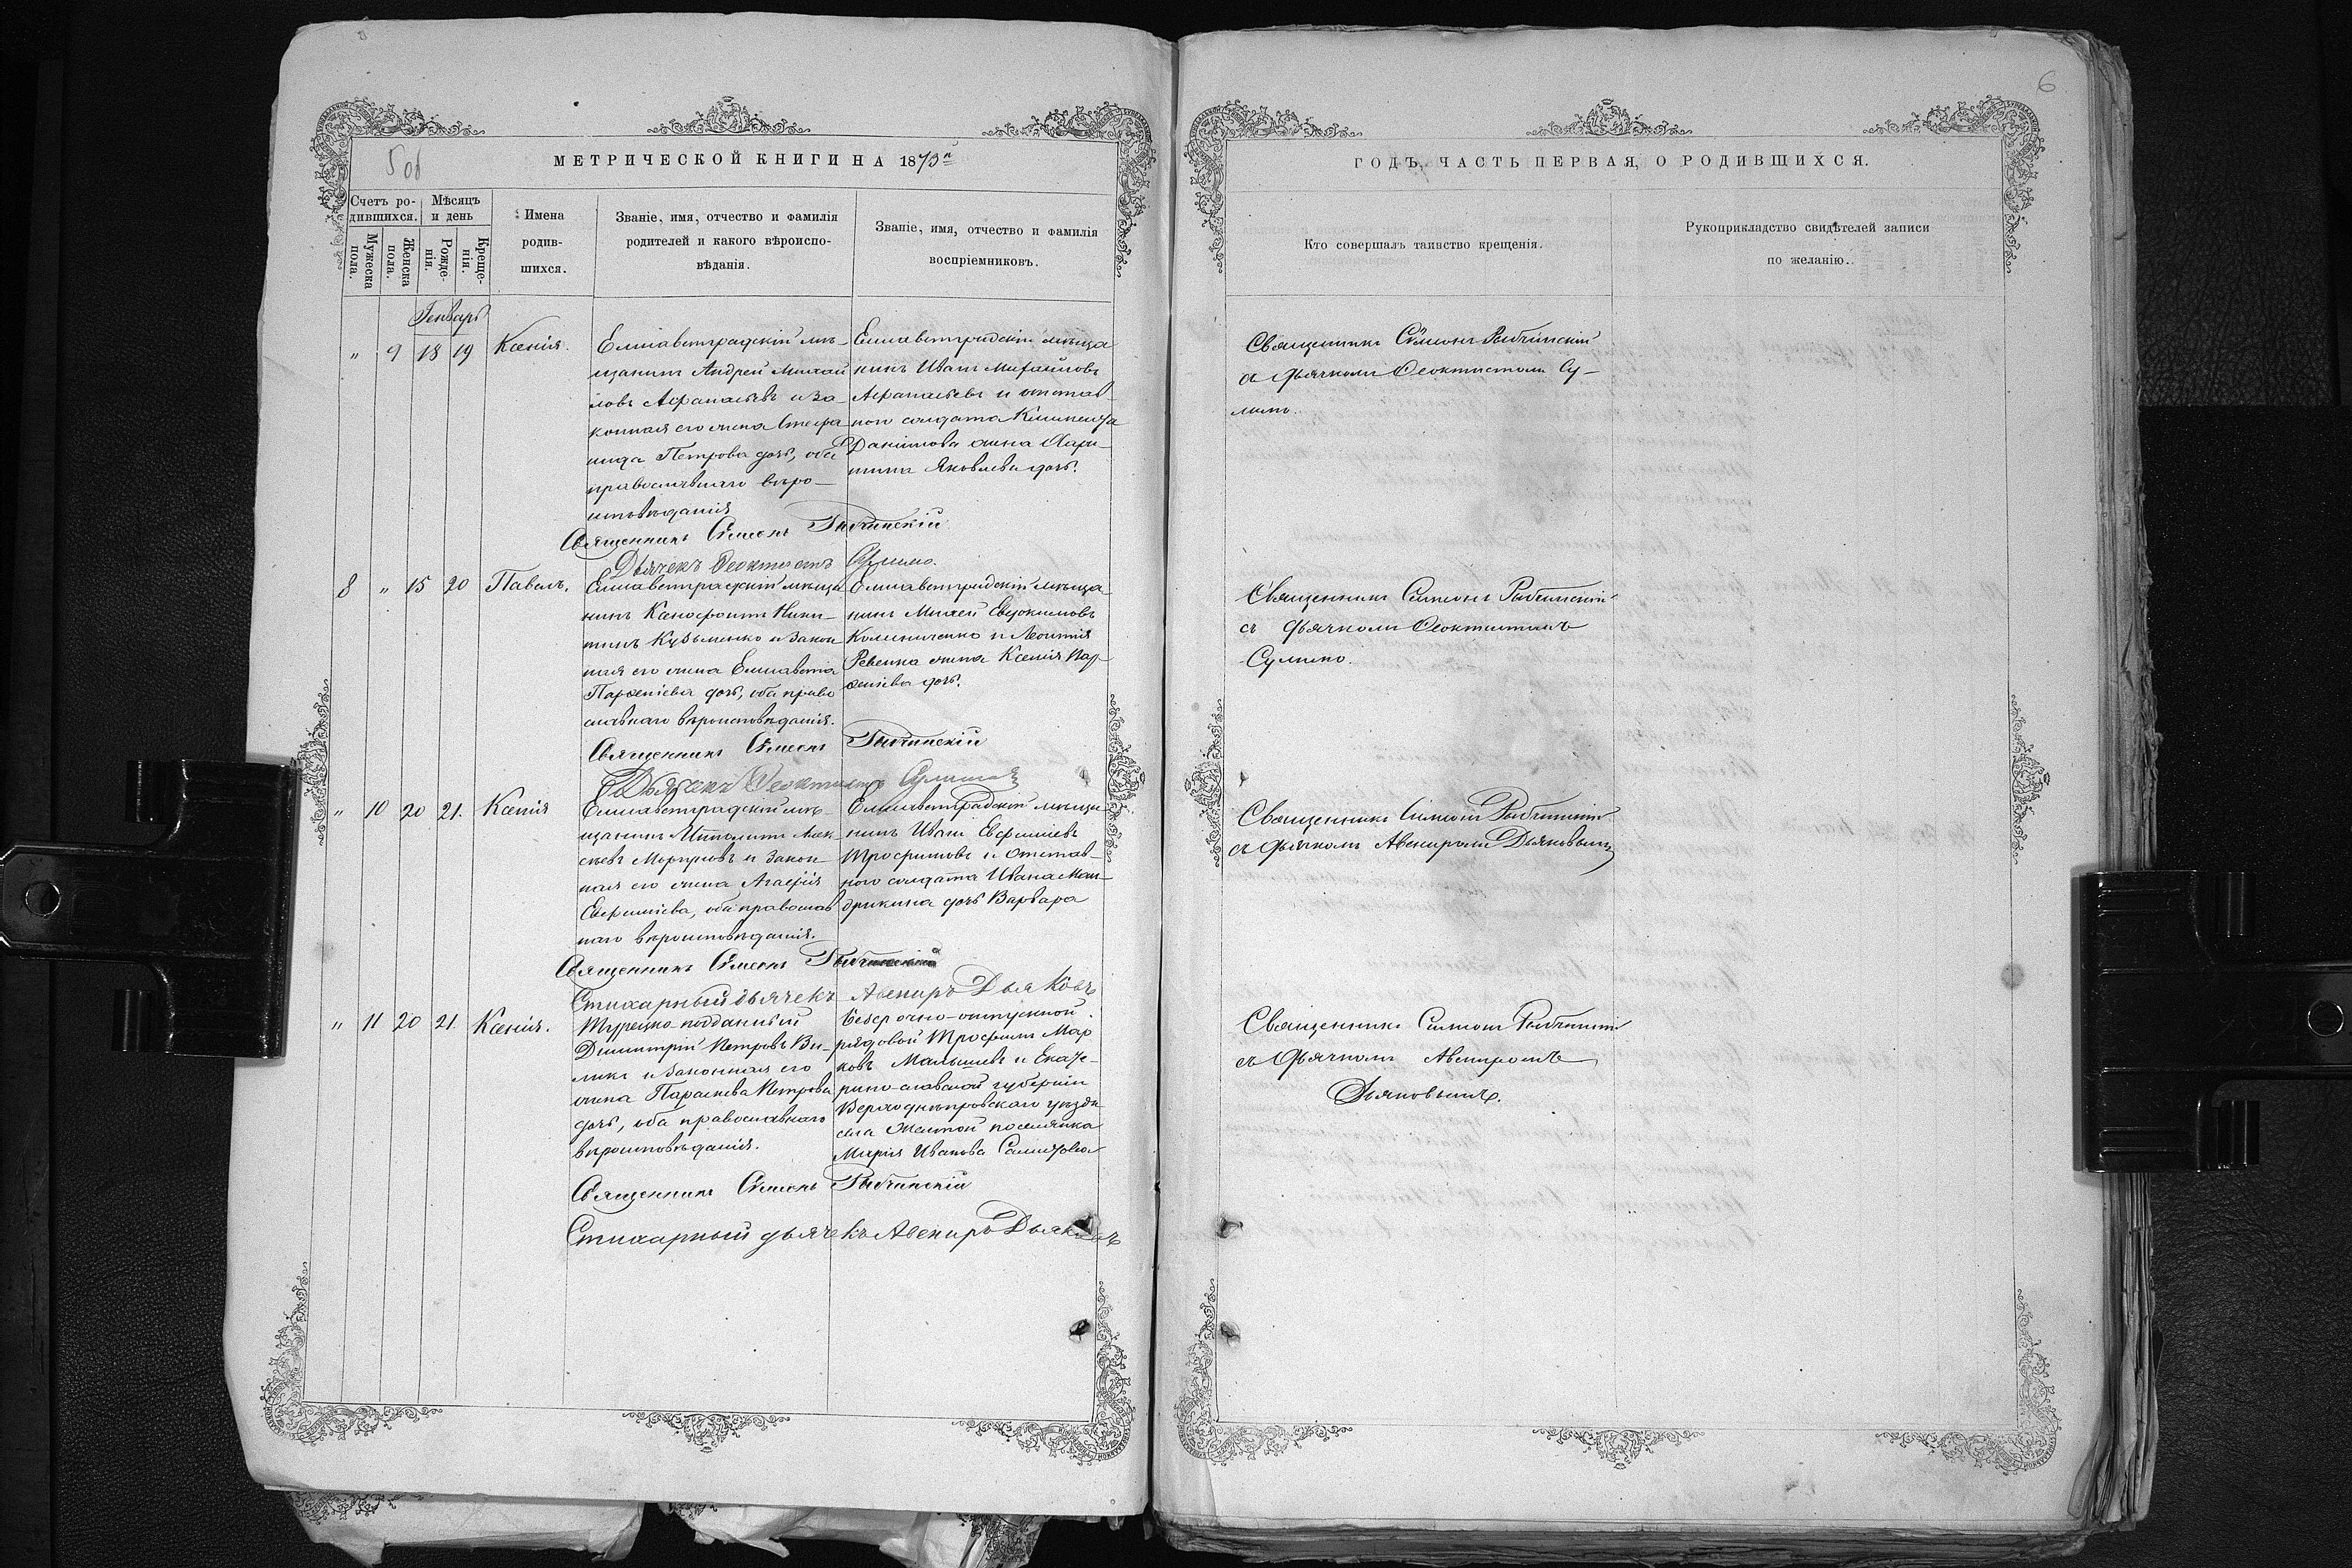 5 об
МЕТРИЧЕСКОЙ КНИГИ НА 1873й
Счетъ ро-
дившихся.
Мужеска
пола.
Женска
пола.
Мѣсяцъ
и день
Рожде-
нія.
Креще-
нія.
Имена
родив-
шихся.
Званіе, имя, отчество и фамилія
родителей и какого вѣроиспо-
вѣданія.
Званіе, имя, отчество и фамилія
воспріемниковъ.
Генварь
" 9 18 19 Ксенія.
Елисаветградскій мѣ-
щанинъ Андрей Михай
ловъ Афанасьевъ и за-
конная его жена Степа
нида Петрова дочь, оба
православнаго вѣро-
исповѣданія
Елисаветградскій мѣща
нинъ Иванъ Михайловъ
Афанасьевъ и отстав-
ного солдата Климента
Данилова жена
Яковлева дочь.
Священникъ Сѵмеонъ Рыбчинскій
Дьячекъ Ѳеоктистъ Сулима.
8 " 15 20 Павелъ.
Елисаветградскій мѣща
нинъ Ксенофонтъ Ники-
тинъ Кузьменко и закон
ная его жена Елисавета
Парѳеніева дочь, оба право
славнаго вѣроисповѣданія.
Елисаветградскій мѣща-
нинъ Евдокимовъ
Коломиченко и Леонтія
Ревенка жена Ксенія Пар-
ѳеніева дочь.
Священникъ Сѵмеонъ Рыбчинскій
Дьячекъ Ѳеоктистъ Сулима
" 10 20 21. Ксенія
Елисаветградскій мѣ-
щанинъ Ипполитъ Алек
сѣевъ и закон-
ная его жена Агафія
Евфиміева, оба православ
наго вѣроисповѣданія.
Елисаветградскій мѣща
нинъ Иванъ Евфиміевъ
Трофимовъ и отстав-
ного солдата Ивана Ман-
дрыкина дочь Варвара
Священникъ Сѵмеонъ Рыбчинскій
Стихарный дьячекъ Авениръ Дьяковъ
" 11 20 21 Ксенія.
Турецко-подданный
Димитрій Петровъ Ве-
ликъ и законная его
жена Параскева Петрова
дочь, оба православнаго
вѣроисповѣданія.
Безсрочно-отпускной
рядовой Трофимъ Мар
ковъ Малышевъ и Екате-
рино-славской губерніи
Верходнѣпровскаго уѣзда
села Желтой поселянка
Марія Иванова
Священникъ Сѵмеонъ Рыбчинскій
Стихарный дьячекъ Авениръ Дьяковъ
6
ГОДЪ, ЧАСТЬ ПЕРВАЯ, О РОДИВШИХСЯ.
Кто совершалъ таинство крещенія.
Рукоприкладство свидѣтелей записи
по желанію.
Священникъ Сѵмеонъ Рыбчинскій
съ дьячкомъ Ѳеоктистомъ Су-
лимо.
Священникъ Симеонъ Рыбчинскій
съ дьячкомъ Ѳеоктистомъ
Сулимо.
Священникъ Симеонъ Рыбчинскій
съ дьячкомъ Авениромъ Дьяковымъ
Священникъ Симеонъ Рыбчинскій
съ дьячкомъ Авениромъ
Дьяковымъ.